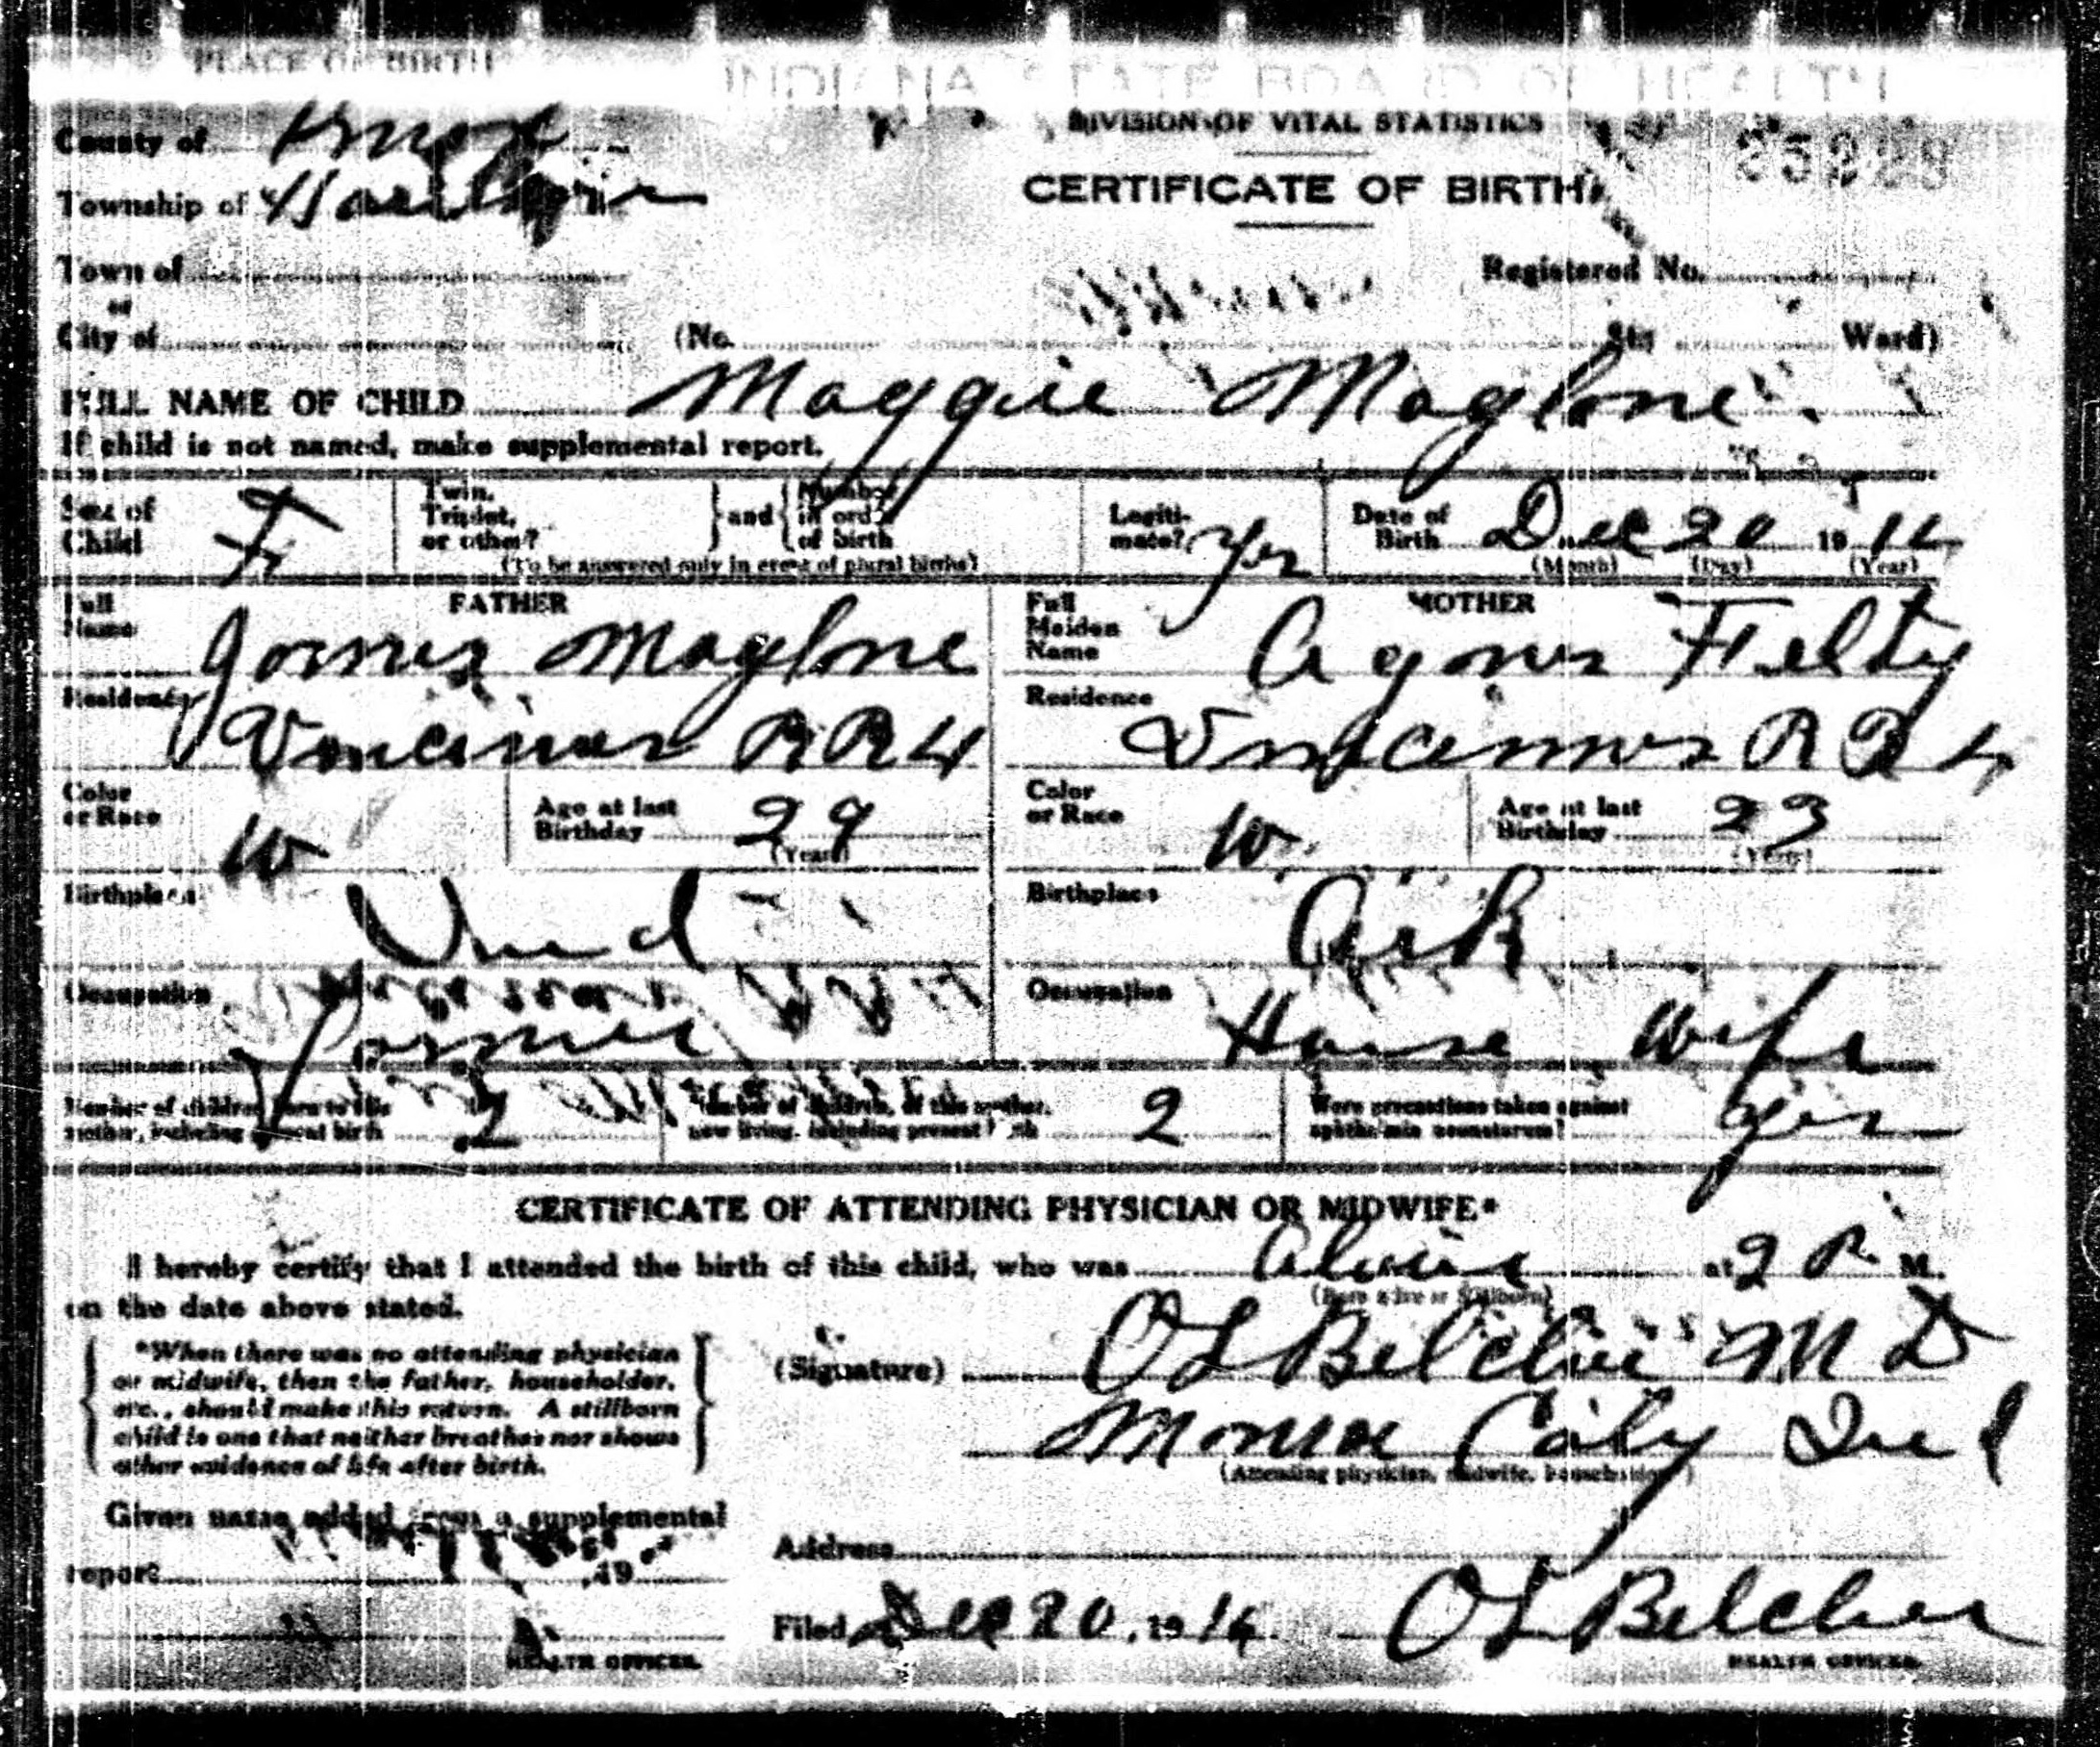 PLACE OF BIRTH
INDIANA STATE BOARD OF HEALTH
County of Knox
DIVISION OF VITAL STATISTICS
Township of Harrison
CERTIFICATE OF BIRTH
Town of
Registered No.
or
City of (No. St; Ward)
FULL NAME OF CHILD Maggie Maglone
If child is not named, make supplemental report.
Sex of Child F
Twin, Triplet, or other? and Number in order of birth
(To be answered only in event of plural births)
Legitimate? Yes
Date of Birth Dec 20 19 16
(Month) (Day) (Year)
FATHER
Full Name James Maglone
MOTHER
Full Maiden Name Agnes Felty
Residence Vincennes RR4
Residence Vincennes RR 4
Color or Race W
Age at last Birthday 29
(Years)
Color or Race W.
Age at last Birthday 23
(Years)
Birthplace Ind
Birthplace Ark
Occupation Farmer
Occupation House Wife
Number of children born to this mother, including present birth 2
Number of children, of this mother, now living, including present birth 2
Were precautions taken against ophthalmia neonatorum? Yes
CERTIFICATE OF ATTENDING PHYSICIAN OR MIDWIFE*
I hereby certify that I attended the birth of this child, who was Alive at 2 P. M.
(Born alive or Stillborn)
on the date above stated.
*When there was no attending physician
or midwife, then the father, householder,
etc., should make this return. A stillborn
child is one that neither breathes nor shows
other evidence of life after birth.
(Signature) OL Belcher M D
Monroe City Ind
(Attending physician, midwife, householder)
Given name added from a supplemental
report 19
Address
Filed Dec 20, 19 16. OL Belcher
HEALTH OFFICER.
HEALTH OFFICER.